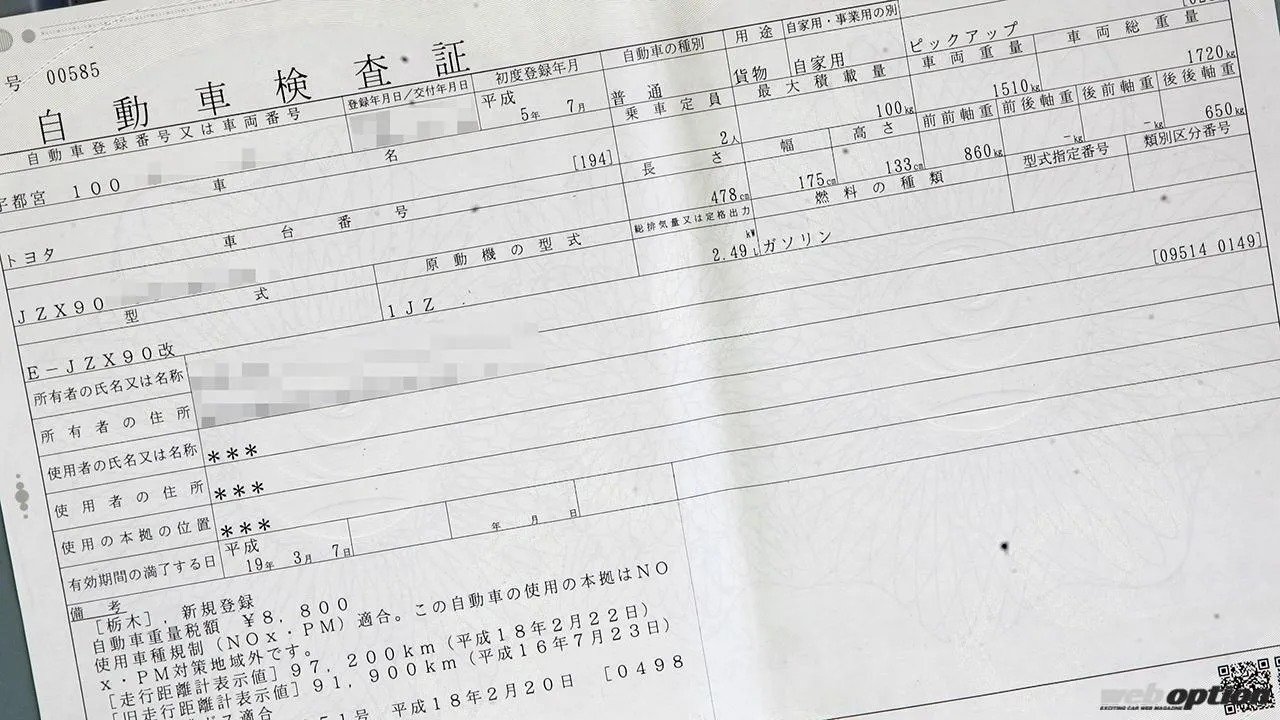 号 00585
自動車検査証
自動車登録番号又は車両番号
登録年月日／交付年月日
初度登録年月
自動車の種別
用途
自家用・事業用の別
宇都宮 100
平成 5年 7月
普通
貨物
自家用
ピックアップ
車名
[194]
乗車定員
最大積載量
車両重量
車両総重量
トヨタ
2人
100kg
1510kg
1720kg
車台番号
長さ
幅
高さ
前前軸重
前後軸重
後前軸重
後後軸重
JZX90
478cm
175cm
133cm
860kg
－kg
－kg
650kg
型式
原動機の型式
総排気量又は定格出力
燃料の種類
型式指定番号
類別区分番号
E－JZX90改
1JZ
kW
2.49L
ガソリン
所有者の氏名又は名称
[09514 0149]
所有者の住所
使用者の氏名又は名称
＊＊＊
使用者の住所
＊＊＊
使用の本拠の位置
＊＊＊
有効期間の満了する日
平成 19年 3月 7日
年 月 日
備考
[栃木], 新規登録
自動車重量税額 ￥8，800
使用車種規制（NOx・PM）適合。この自動車の使用の本拠はNO
x・PM対策地域外です。
[走行距離計表示値] 97，200km（平成18年2月22日）
[旧走行距離計表示値] 91，900km（平成16年7月23日）
適合
号 平成18年2月20日 [0498
web option
EXCITING CAR WEB MAGAZINE